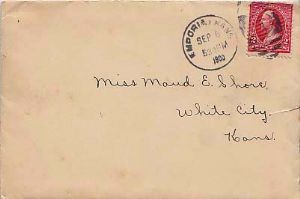 EMPORIA, KANS.
SEP 6
1900
Miss Maud E. Shore,
White City,
Kans.